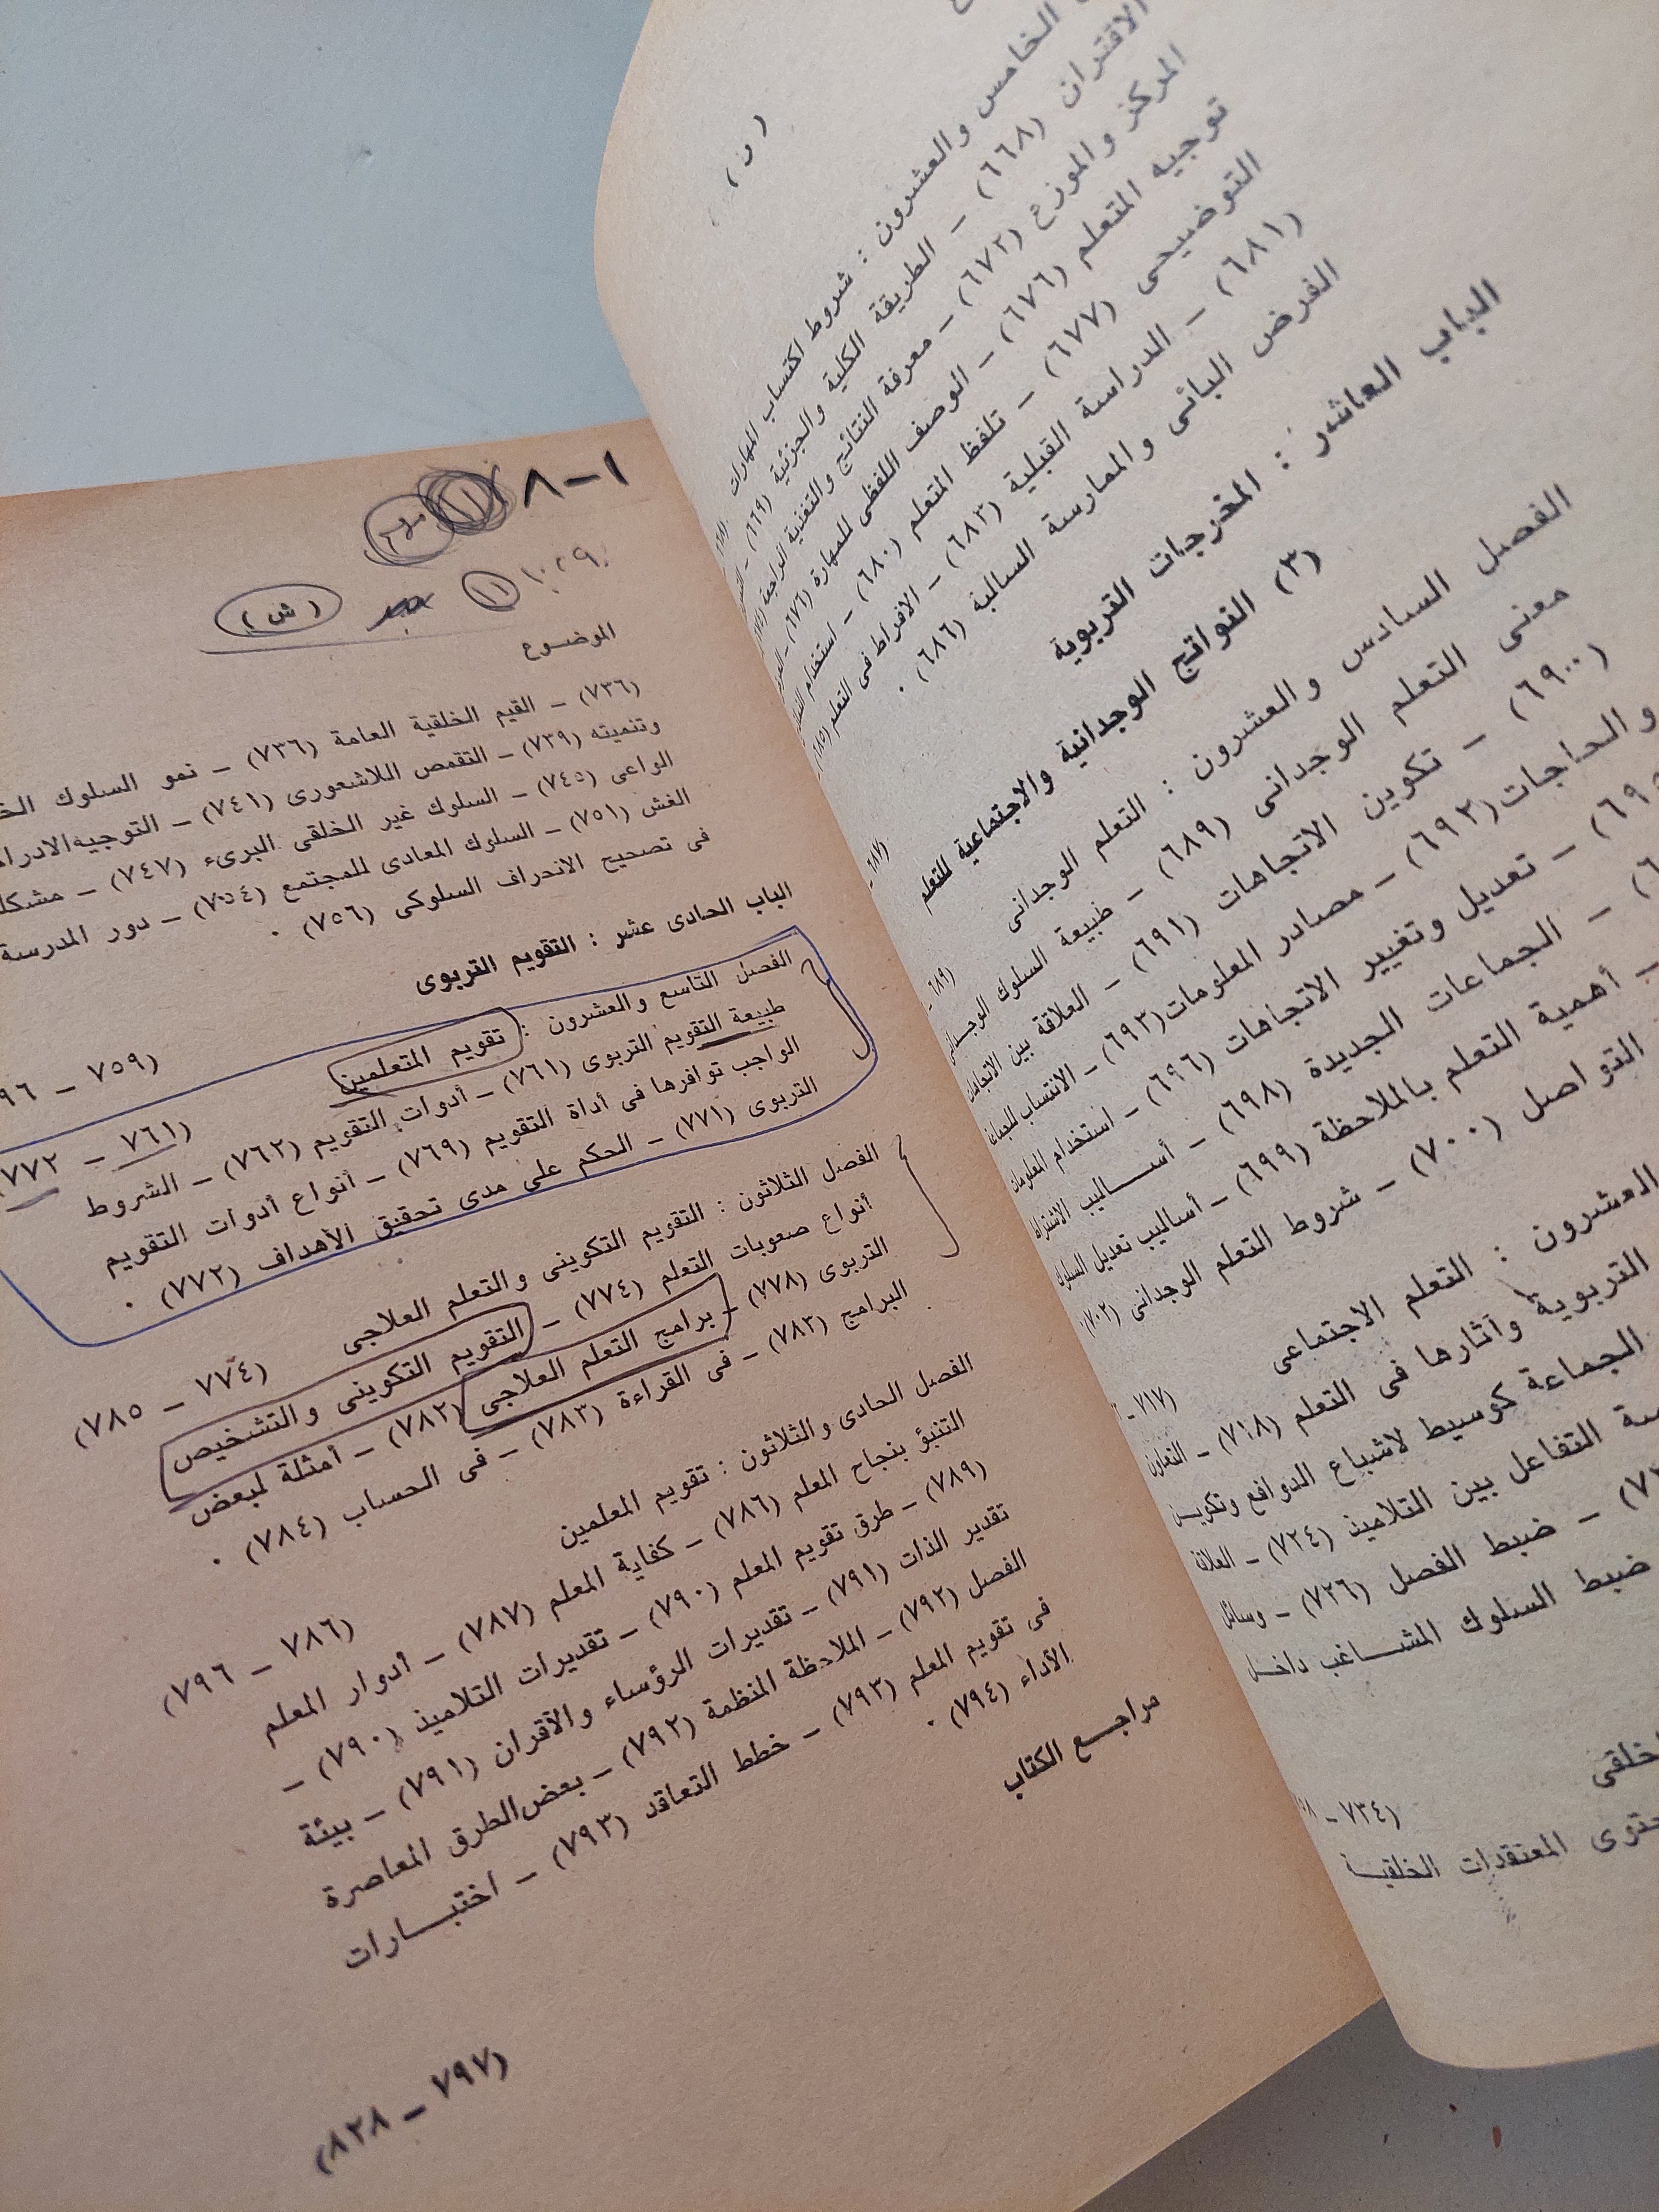 ( ر )
الخامس والعشرون : شروط اكتساب المهارات
الاقتران (٦٦٨) – الطريقة الكلية والجزئية (٦٦٩) –
المركز والموزع (٦٧٢) – معرفة النتائج والتغذية الراجعة
توجيه المتعلم (٦٧٦) – الوصف اللفظى للمهارة (٦٧٦) –
التوضيحى (٦٧٧) – تلفظ المتعلم (٦٨٠) – استخدام
(٦٨١) – الدراسة القبلية (٦٨٣) – الافراط فى التعلم (٦٨٥) –
الفرض البائى والممارسة السالبة (٦٨٦) .
الباب العاشر : المخرجات التربوية
(٣) النواتج الوجدانية والاجتماعية للتعلم
(٦٨٧ –
الفصل السادس والعشرون : التعلم الوجدانى
(٦٨٩ –
معنى التعلم الوجدانى (٦٨٩) – طبيعة السلوك الوجدانى
(٦٩٠) – تكوين الاتجاهات (٦٩١) – العلاقة بين الاتجاهات
والحاجات (٦٩٢) – مصادر المعلومات (٦٩٣) – الانتساب للجماعات
– تعديل وتغيير الاتجاهات (٦٩٦) – استخدام المعلومات
– الجماعات الجديدة (٦٩٨) – أساليب الاشتراك
– أهمية التعلم بالملاحظة (٦٩٩) – أساليب تعديل السلوك
التواصل (٧٠٠) – شروط التعلم الوجدانى (٧٠٢)
العشرون : التعلم الاجتماعى
(٧١٧ –
التربوية وآثارها فى التعلم (٧١٨) – التعاون
الجماعة كوسيط لاشباع الدوافع وتكوين
التفاعل بين التلاميذ (٧٢٤) – العلاقة
– ضبط الفصل (٧٢٦) – وسائل
ضبط السلوك المشاغب داخل
(٧٣٤ –
المعتقدات الخلقية
٨-١
١١
١١
( ش )
الموضوع
(٧٣٦) – القيم الخلقية العامة (٧٣٦) – نمو السلوك
وتنميته (٧٣٩) – التقمص اللاشعورى (٧٤١) – التوجيه
الواعى (٧٤٥) – السلوك غير الخلقى البرىء (٧٤٧) –
الغش (٧٥١) – السلوك المعادى للمجتمع (٧٥٤) – دور المدرسة
فى تصحيح الانحراف السلوكى (٧٥٦) .
الباب الحادى عشر : التقويم التربوى
(٧٥٩ –
الفصل التاسع والعشرون : تقويم المتعلمين
(٧٦١ – ٧٧٢
طبيعة التقويم التربوى (٧٦١) – أدوات التقويم (٧٦٢) – الشروط
الواجب توافرها فى أداة التقويم (٧٦٩) – أنواع أدوات التقويم
التربوى (٧٧١) – الحكم على مدى تحقيق الأهداف (٧٧٢) .
الفصل الثلاثون : التقويم التكوينى والتعلم العلاجى
(٧٧٤ – ٧٨٥)
أنواع صعوبات التعلم (٧٧٤) – التقويم التكوينى والتشخيص
التربوى (٧٧٨) – برامج التعلم العلاجى (٧٨٢) – أمثلة لبعض
البرامج (٧٨٣) – فى القراءة (٧٨٣) – فى الحساب (٧٨٤) .
الفصل الحادى والثلاثون : تقويم المعلمين
(٧٨٦ – ٧٩٦)
التنبؤ بنجاح المعلم (٧٨٦) – كفاية المعلم (٧٨٧) – أدوار المعلم
(٧٨٩) – طرق تقويم المعلم (٧٩٠) – تقديرات التلاميذ (٧٩٠) –
تقدير الذات (٧٩١) – تقديرات الرؤساء والأقران (٧٩١) – بيئة
الفصل (٧٩٢) – الملاحظة المنظمة (٧٩٢) – بعض الطرق المعاصرة
فى تقويم المعلم (٧٩٣) – خطط التعاقد (٧٩٣) – اختبارات
الأداء (٧٩٤) .
مراجع الكتاب
(٧٩٧ – ٨٢٨)